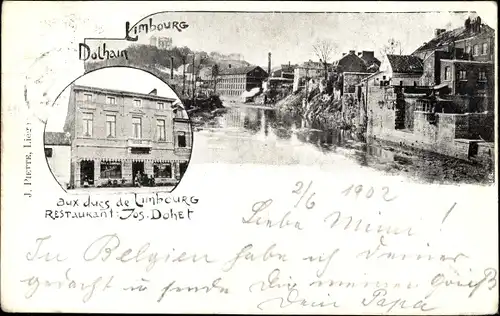 Limbourg
Dolhain
J. Piette, Liège
aux ducs de Limbourg
Restaurant: Jos. Dohet
2/6 1902
Liebe Mimi!
In Belgien habe ich deiner
gedacht u sende Dir meinen Gruß
Dein Papa